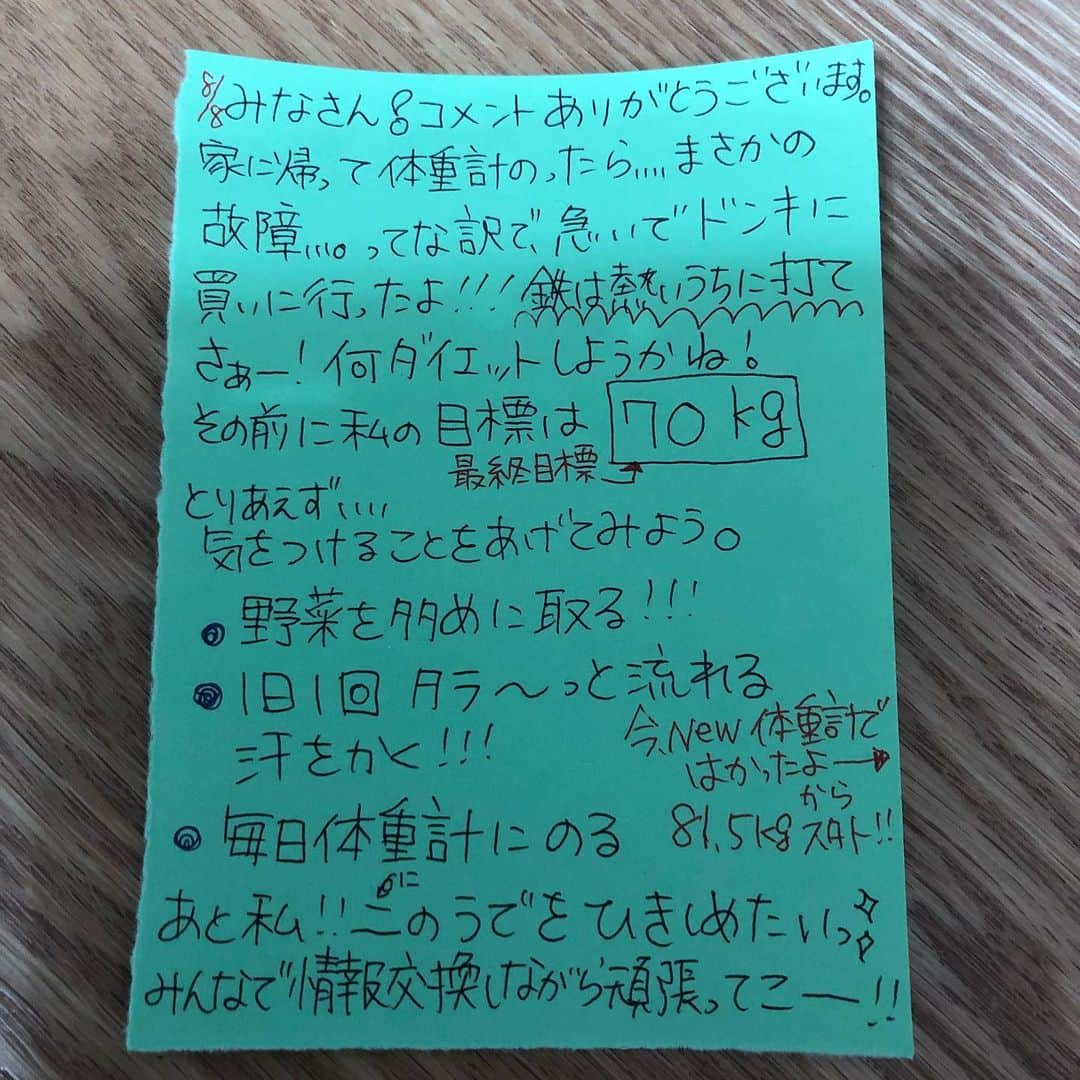 8/8 みなさん!コメントありがとうございます。
家に帰って体重計のったら....まさかの
故障...。ってな訳で、急いでドンキに
買いに行ったよ!!!鉄は熱いうちに打て
さぁー!何ダイエットしようかね!
その前に私の目標は 70kg
最終目標
とりあえず....
気をつけることをあげてみよう。
野菜を多めに取る!!!
1日1回タラ〜っと流れる
汗をかく!!!
今、New体重計で
はかったよー
から
81.5kgスタート!!
毎日体重計にのる
に
あと私!!二のうでをひきしめたいっ
みんなで情報交換しながら頑張ってこー!!